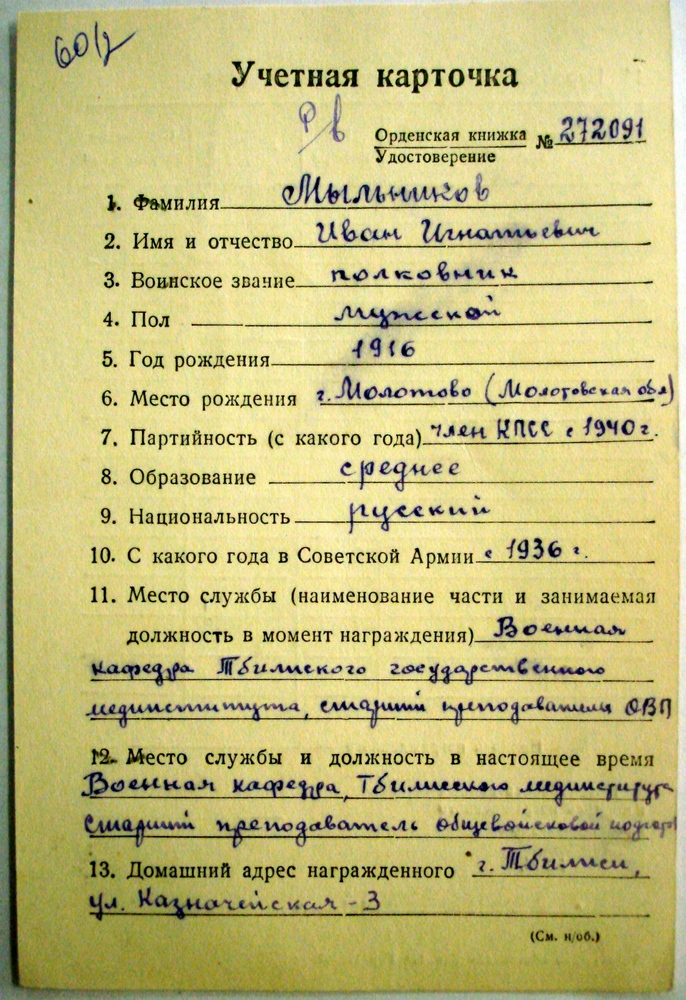 60/2
Учетная карточка
Р/в
Орденская книжка № 272091
Удостоверение
1. Фамилия Мыльников
2. Имя и отчество Иван Игнатьевич
3. Воинское звание полковник
4. Пол мужской
5. Год рождения 1916
6. Место рождения г. Молотово (Молотовская обл)
7. Партийность (с какого года) член КПСС с 1940 г.
8. Образование среднее
9. Национальность русский
10. С какого года в Советской Армии с 1936 г.
11. Место службы (наименование части и занимаемая
должность в момент награждения) Военная
кафедра Тбилиского государственного
мединститута, старший преподаватель ОВП
12. Место службы и должность в настоящее время
Военная кафедра, Тбилисского мединститута
Старший преподаватель общевойсковой
13. Домашний адрес награжденного г. Тбилиси,
ул. Казначейская - 3
(См. н/об.)